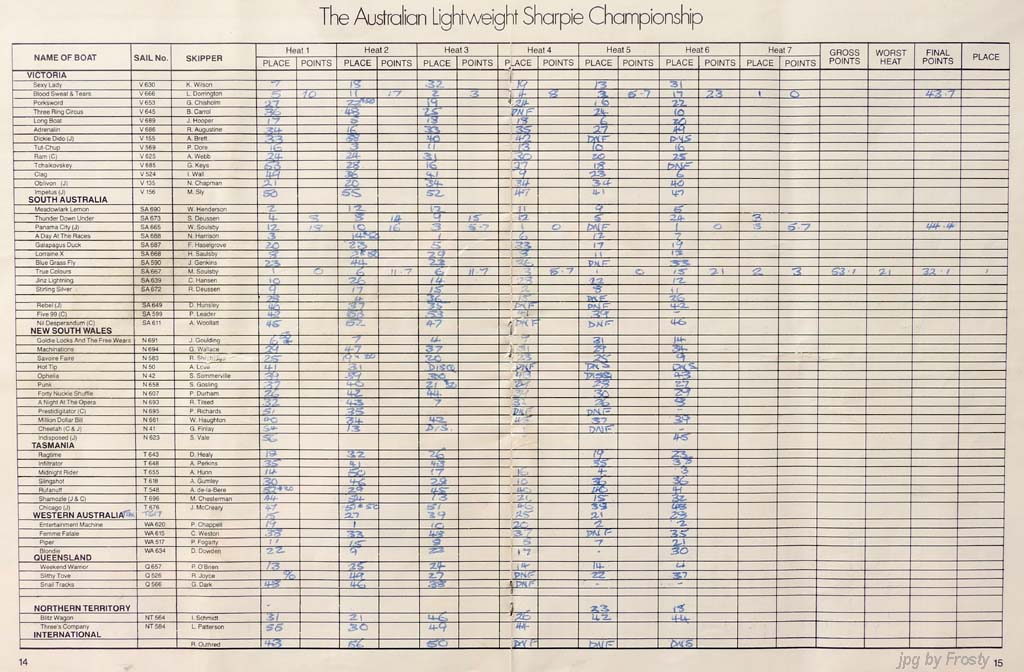 The Australian Lightweight Sharpie Championship
NAME OF BOAT SAIL No. SKIPPER Heat 1 Heat 2 Heat 3 Heat 4 Heat 5 Heat 6 Heat 7 GROSS POINTS WORST HEAT FINAL POINTS PLACE
PLACE POINTS PLACE POINTS PLACE POINTS PLACE POINTS PLACE POINTS PLACE POINTS PLACE POINTS
VICTORIA
Sexy Lady V 630 K. Wilson 7 18 32 19 13 31
Blood Sweat & Tears V 666 L. Dorrington 5 10 11 17 2 3 4 8 3 5.7 17 23 1 0 43.7
Porksword V 653 G. Chisholm 27 19 24 16 22
Three Ring Circus V 645 B. Carrol 36 48 25 DNF 24 10
Long Boat V 689 J. Hooper 17 5 18 18 6 20
Adrenalin V 686 R. Augustine 34 16 33 35 27 49
Dickie Dido (J) V 155 A. Brett 40 42 DNF DNS
Tut-Chup V 569 P. Dore 16 3 11 13 10 16
Ram (C) V 625 A. Webb 24 24 31 30 20 25
Tchaikovskey V 685 G. Keys 53 28 16 27 18 DNF
Clag V 524 I. Wall 49 36 41 9 23 6
Oblivon (J) V 135 N. Chapman 21 20 34 34 34 40
Impetus (J) V 156 M. Sly 50 55 52 47 41 47
SOUTH AUSTRALIA
Meadowlark Lemon SA 690 W. Henderson 2 12 12 11 9 5
Thunder Down Under SA 673 S. Deussen 4 8 8 14 9 15 12 5 24 3
Panama City (J) SA 665 W. Soulsby 12 18 10 16 3 5.7 1 0 DNF 1 0 3 5.7 44.4
A Day At The Races SA 688 N. Harrison 3 1 6 12 7
Galapagus Duck SA 687 F. Haselgrove 20 23 5 33 17 19
Lorraine X SA 668 H. Saulsby 8 29 8 11 13
Blue Grass Fly SA 590 J. Genkins 23 44 23 26 DNF 33
True Colours SA 667 M. Soulsby 1 0 6 11.7 6 11.7 3 5.7 1 0 15 21 2 3 53.1 21 32.1 1
Jinz Lightning SA 639 C. Hansen 10 26 14 22 12
Stirling Silver SA 672 R. Deussen 9 17 15 2 8 11
28 4 36 15 DNF 26
Rebel (J) SA 649 D. Hunsley 40 37 35 DNF DNF 42
Five 99 (C) SA 599 P. Leader 42 53 53 31 39 -
Nil Desperandum (C) SA 611 A. Woollatt 45 52 47 DNF DNF 46
NEW SOUTH WALES
Goldie Locks And The Free Wears N 691 J. Goulding 6 7 4 9 31 14
Machinations N 694 G. Wallace 29 47 37 29 34
Savoire Faire N 583 25 20 23 25 9
Hot Tip N 50 A. Love 41 31 DISQ DNF DNS DNS
Ophelia N 42 S. Sommerville 39 39 30 43 DISQ 43
Punk N 658 S. Gosling 37 40 28 27
Forty Nuckle Shuffle N 607 P. Durham 26 42 44 30 29
A Night At The Opera N 693 R. Tilsed 32 43 7 32 26 8
Prestidigitator (C) N 695 P. Richards 51 35 DNS DNF -
Million Dollar Bill N 661 W. Haughton 40 34 42 37 39
Cheetah (C & J) N 41 G. Finlay 54 13 D/S. - DNF -
Indisposed (J) N 623 S. Vale 56 45
TASMANIA
Ragtime T 643 D. Healy 18 32 26 19 23
Infiltrator T 648 A. Perkins 35 41 43 35
Midnight Rider T 655 A. Hunn 14 50 17 16 4 3
Slingshot T 618 A. Gumley 30 46 28 10 36 36
Rufanuff T 548 A. de-la-Bere 29 45 40 40 41
Shamozle (J & C) T 696 M. Chesterman 44 54 13 21 15 32
Chicago (J) T 676 J. McCreary 47 51 46 38 48
WESTERN AUSTRALIA 15 27 39 25 21 28
Entertainment Machine WA 620 P. Chappell 19 1 10 20 2 2
Femme Fatale WA 615 C. Weston 38 33 48 37 DNF 35
Piper WA 517 P. Fogarty 11 15 8 5 7 21
Blondie WA 634 D. Dowden 22 9 22 17 - 30
QUEENSLAND
Weekend Warrior Q 657 P. O'Brien 13 25 24 14 14 4
Slithy Tove Q 526 R. Joyce 49 27 DNF 22 37
Snail Tracks Q 566 G. Dark 48 46 38 DNF
NORTHERN TERRITORY - 33 18
Blitz Wagon NT 564 I. Schmidt 31 21 46 26 42 44
Three's Company NT 584 L. Patterson 55 30 49 44
INTERNATIONAL
R. Outhred 43 56 50 DNF DNF DNS
14
15
jpg by Frosty